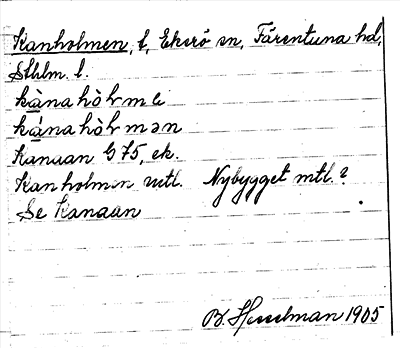 Kanholmen, t, Ekerö sn, Färentuna hd,
Sthlm. l.
kànahòlme
kánahòlmən
Kanaan G75, ek.
Kanholmen mtl. Nybygget mtl.?
Se Kanaan
B. Hesselman 1905